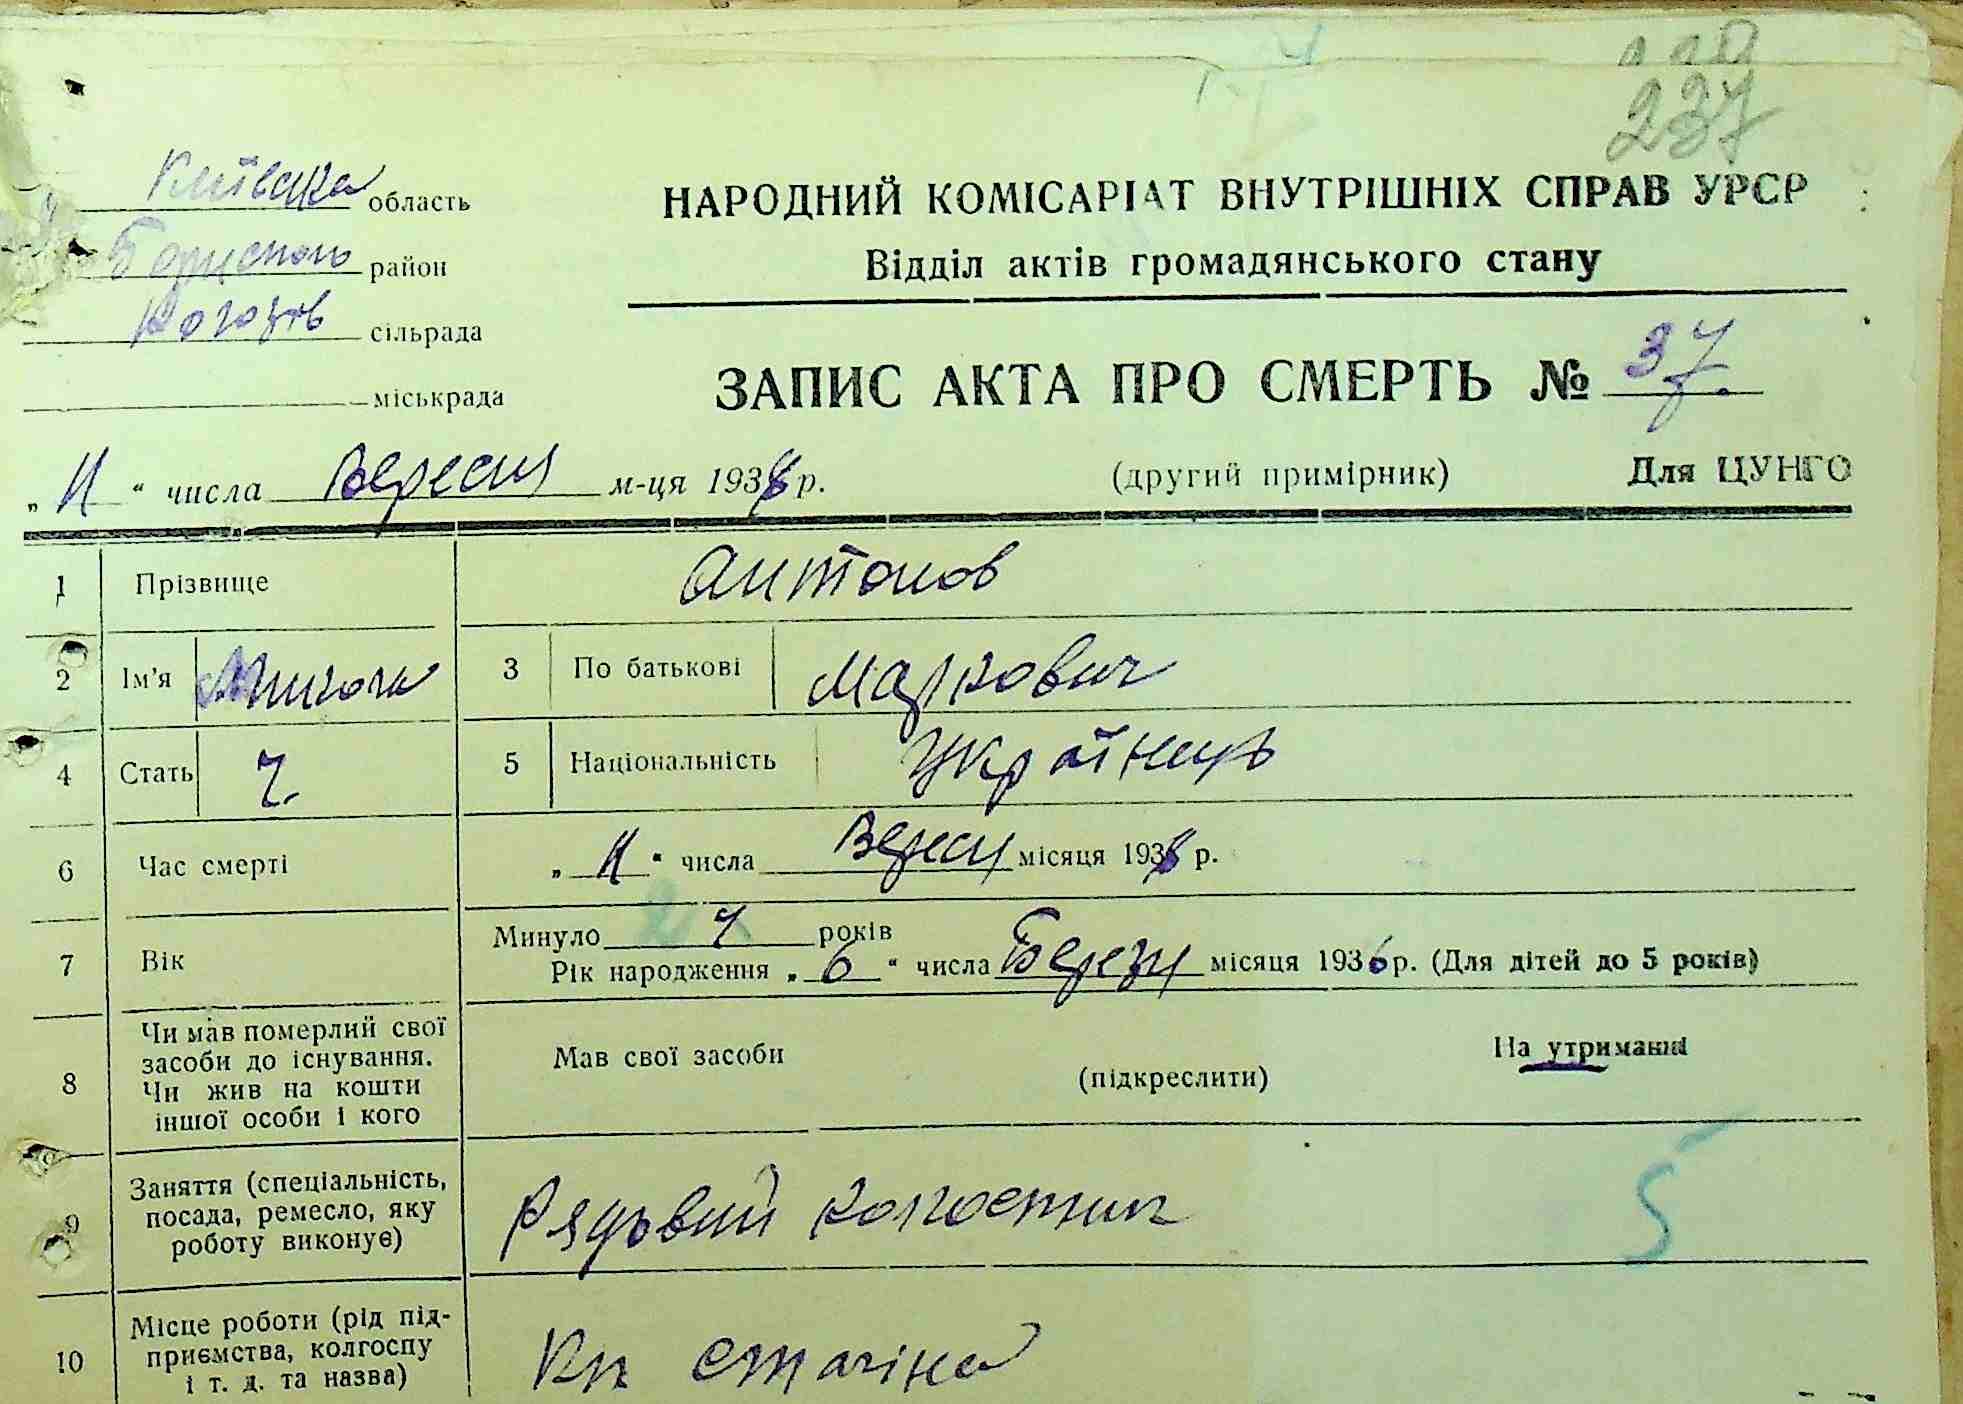 237
Київська область
Борисполь район
Когозів сільрада
міськрада
НАРОДНИЙ КОМІСАРІАТ ВНУТРІШНІХ СПРАВ УРСР
Відділ актів громадянського стану
ЗАПИС АКТА ПРО СМЕРТЬ № 37.
„11“ числа Вересня м-ця 1938 р.
(другий примірник)
Для ЦУНГО
1 Прізвище Антонов
2 Ім'я Микола 3 По батькові Маркович
4 Стать ч. 5 Національність Українець
6 Час смерті „11“ числа Вересня місяця 1938 р.
7 Вік Минуло років
Рік народження „6“ числа Березня місяця 1936 р. (Для дітей до 5 років)
8 Чи мав померлий свої засоби до існування. Чи жив на кошти іншої особи і кого
Мав свої засоби (підкреслити) На утриманні
9 Заняття (спеціальність, посада, ремесло, яку роботу виконує) Рядовий колгоспник
5
10 Місце роботи (рід підприємства, колгоспу і т. д. та назва) Кл Сталіна